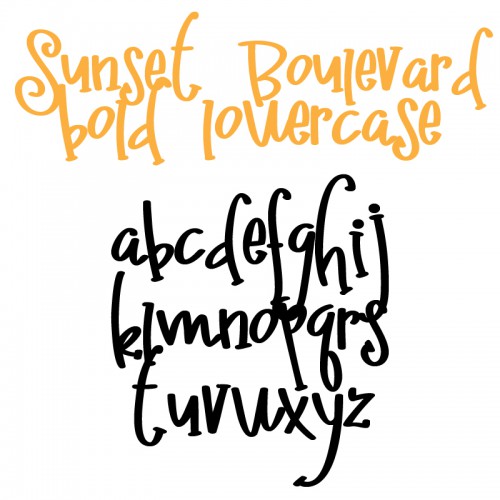 Sunset Boulevard
bold lowercase
abcdefghij
klmnopqrs
tuvwxyz